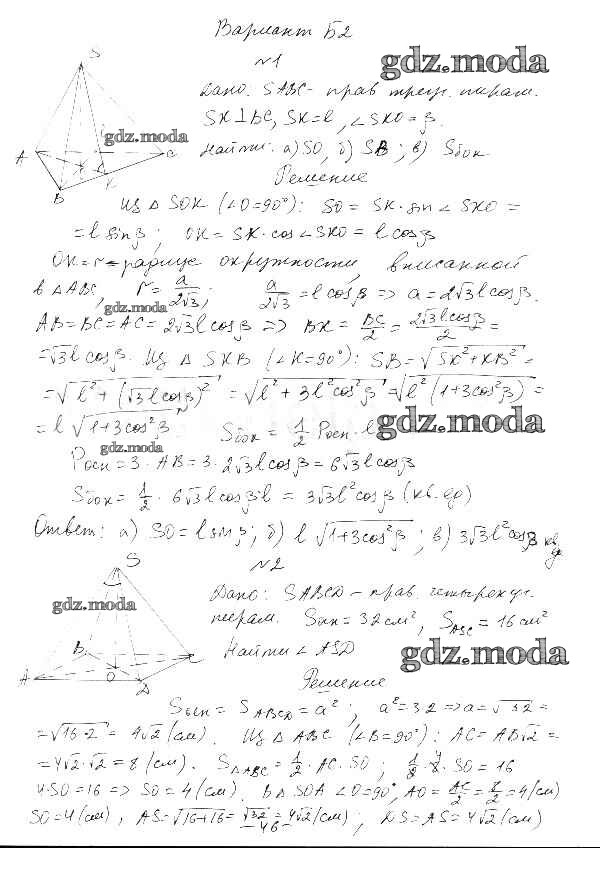 Вариант Б2
№1
gdz.moda
Дано: SABC - прав. треуг. пирам.
SK⊥BC, SK=l, ∠SKO=β.
gdz.moda
Найти: а) SO, б) SB; в) Sбок
Решение
Из △ SOK (∠O=90°): SO = SK·sin∠SKO =
= l sinβ; OK = SK·cos∠SKO = l cosβ
OK=r - радиус окружности, вписанной
в △ABC, r = a/2√3; a/2√3 = l cosβ => a = 2√3 l cosβ.
gdz.moda
AB=BC=AC= 2√3 l cosβ => BK = BC/2 = 2√3 l cosβ/2 =
= √3 l cosβ. Из △ SKB (∠K=90°): SB = √SK²+KB² =
= √l² + (√3 l cosβ)² = √l² + 3l²cos²β = √l²(1+3cos²β) =
= l √1+3cos²β Sбок = 1/2 Pосн · l
gdz.moda
gdz.moda
Pосн = 3 · AB = 3 · 2√3 l cosβ = 6√3 l cosβ
Sбок = 1/2 · 6√3 l cosβ · l = 3√3 l² cosβ (кв. ед)
Ответ: а) SO = l sinβ; б) l √1+3cos²β; в) 3√3 l² cosβ кв. ед.
№2
gdz.moda
Дано: SABCD - прав. четырехуг.
пирам. Sосн = 32 см², SASC = 16 см²
Найти ∠ASD
gdz.moda
Решение
Sосн = SABCD = a²; a² = 32 => a = √32 =
= √16·2 = 4√2 (см). Из △ ABC (∠B=90°): AC = AB√2 =
= 4√2·√2 = 8 (см). S△ABC = 1/2 · AC · SO; 1/2 · 8 · SO = 16
4·SO = 16 => SO = 4 (см). В △ SOA ∠O=90°, AO = AC/2 = 8/2 = 4 (см)
SO = 4 (см), AS = √16+16 = √32 = 4√2 (см); DS = AS = 4√2 (см)